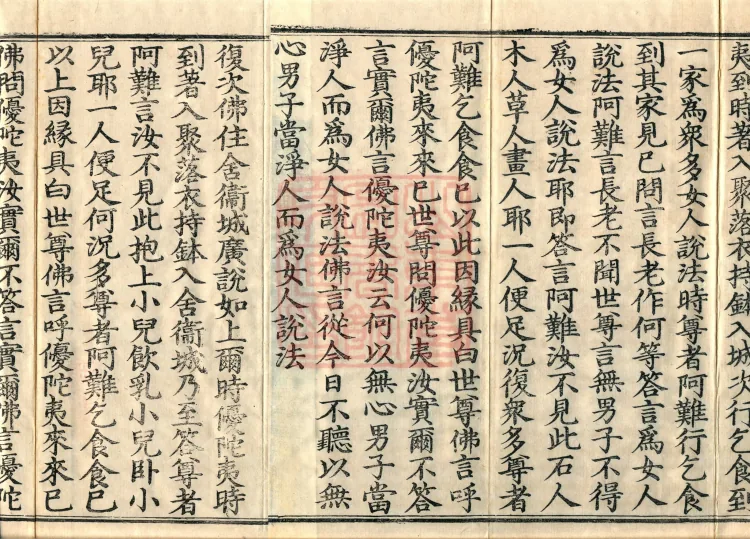 夷到時著入聚落衣持鉢入城次行乞食到
一家爲衆多女人說法時尊者阿難行乞食
到其家見已問言長老作何等答言爲女人
說法阿難言長老不聞世尊言無男子不得
爲女人說法耶即答言阿難汝不見此石人
木人草人畫人耶一人便足況復衆多尊者
阿難乞食食已以此因緣具白世尊佛言呼
優陀夷來來已世尊問優陀夷汝實爾不答
言實爾佛言優陀夷汝云何以無心男子當
淨人而爲女人說法佛言從今日不聽以無
心男子當淨人而爲女人說法
復次佛住舍衞城廣說如上爾時優陀夷時
到著入聚落衣持鉢入舍衞城乃至答尊者
阿難言汝不見此抱上小兒飲乳小兒臥小
兒耶一人便足何況多尊者阿難乞食食已
以上因緣具白世尊佛言呼優陀夷來來已
佛問優陀夷汝實爾不答言實爾佛言優陀